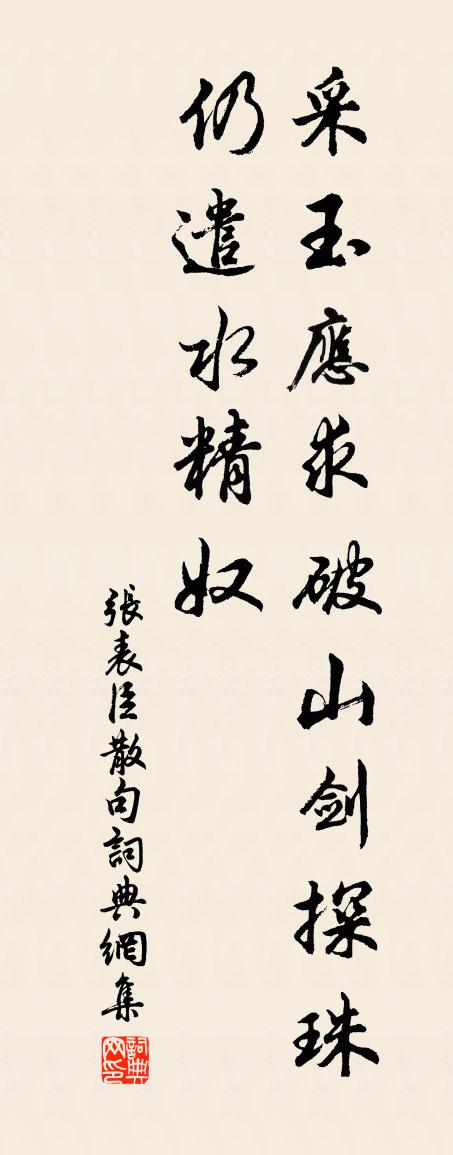 采玉應求破山剑探珠
仍遣水精奴
張表臣散句詞典網集
詞典网印